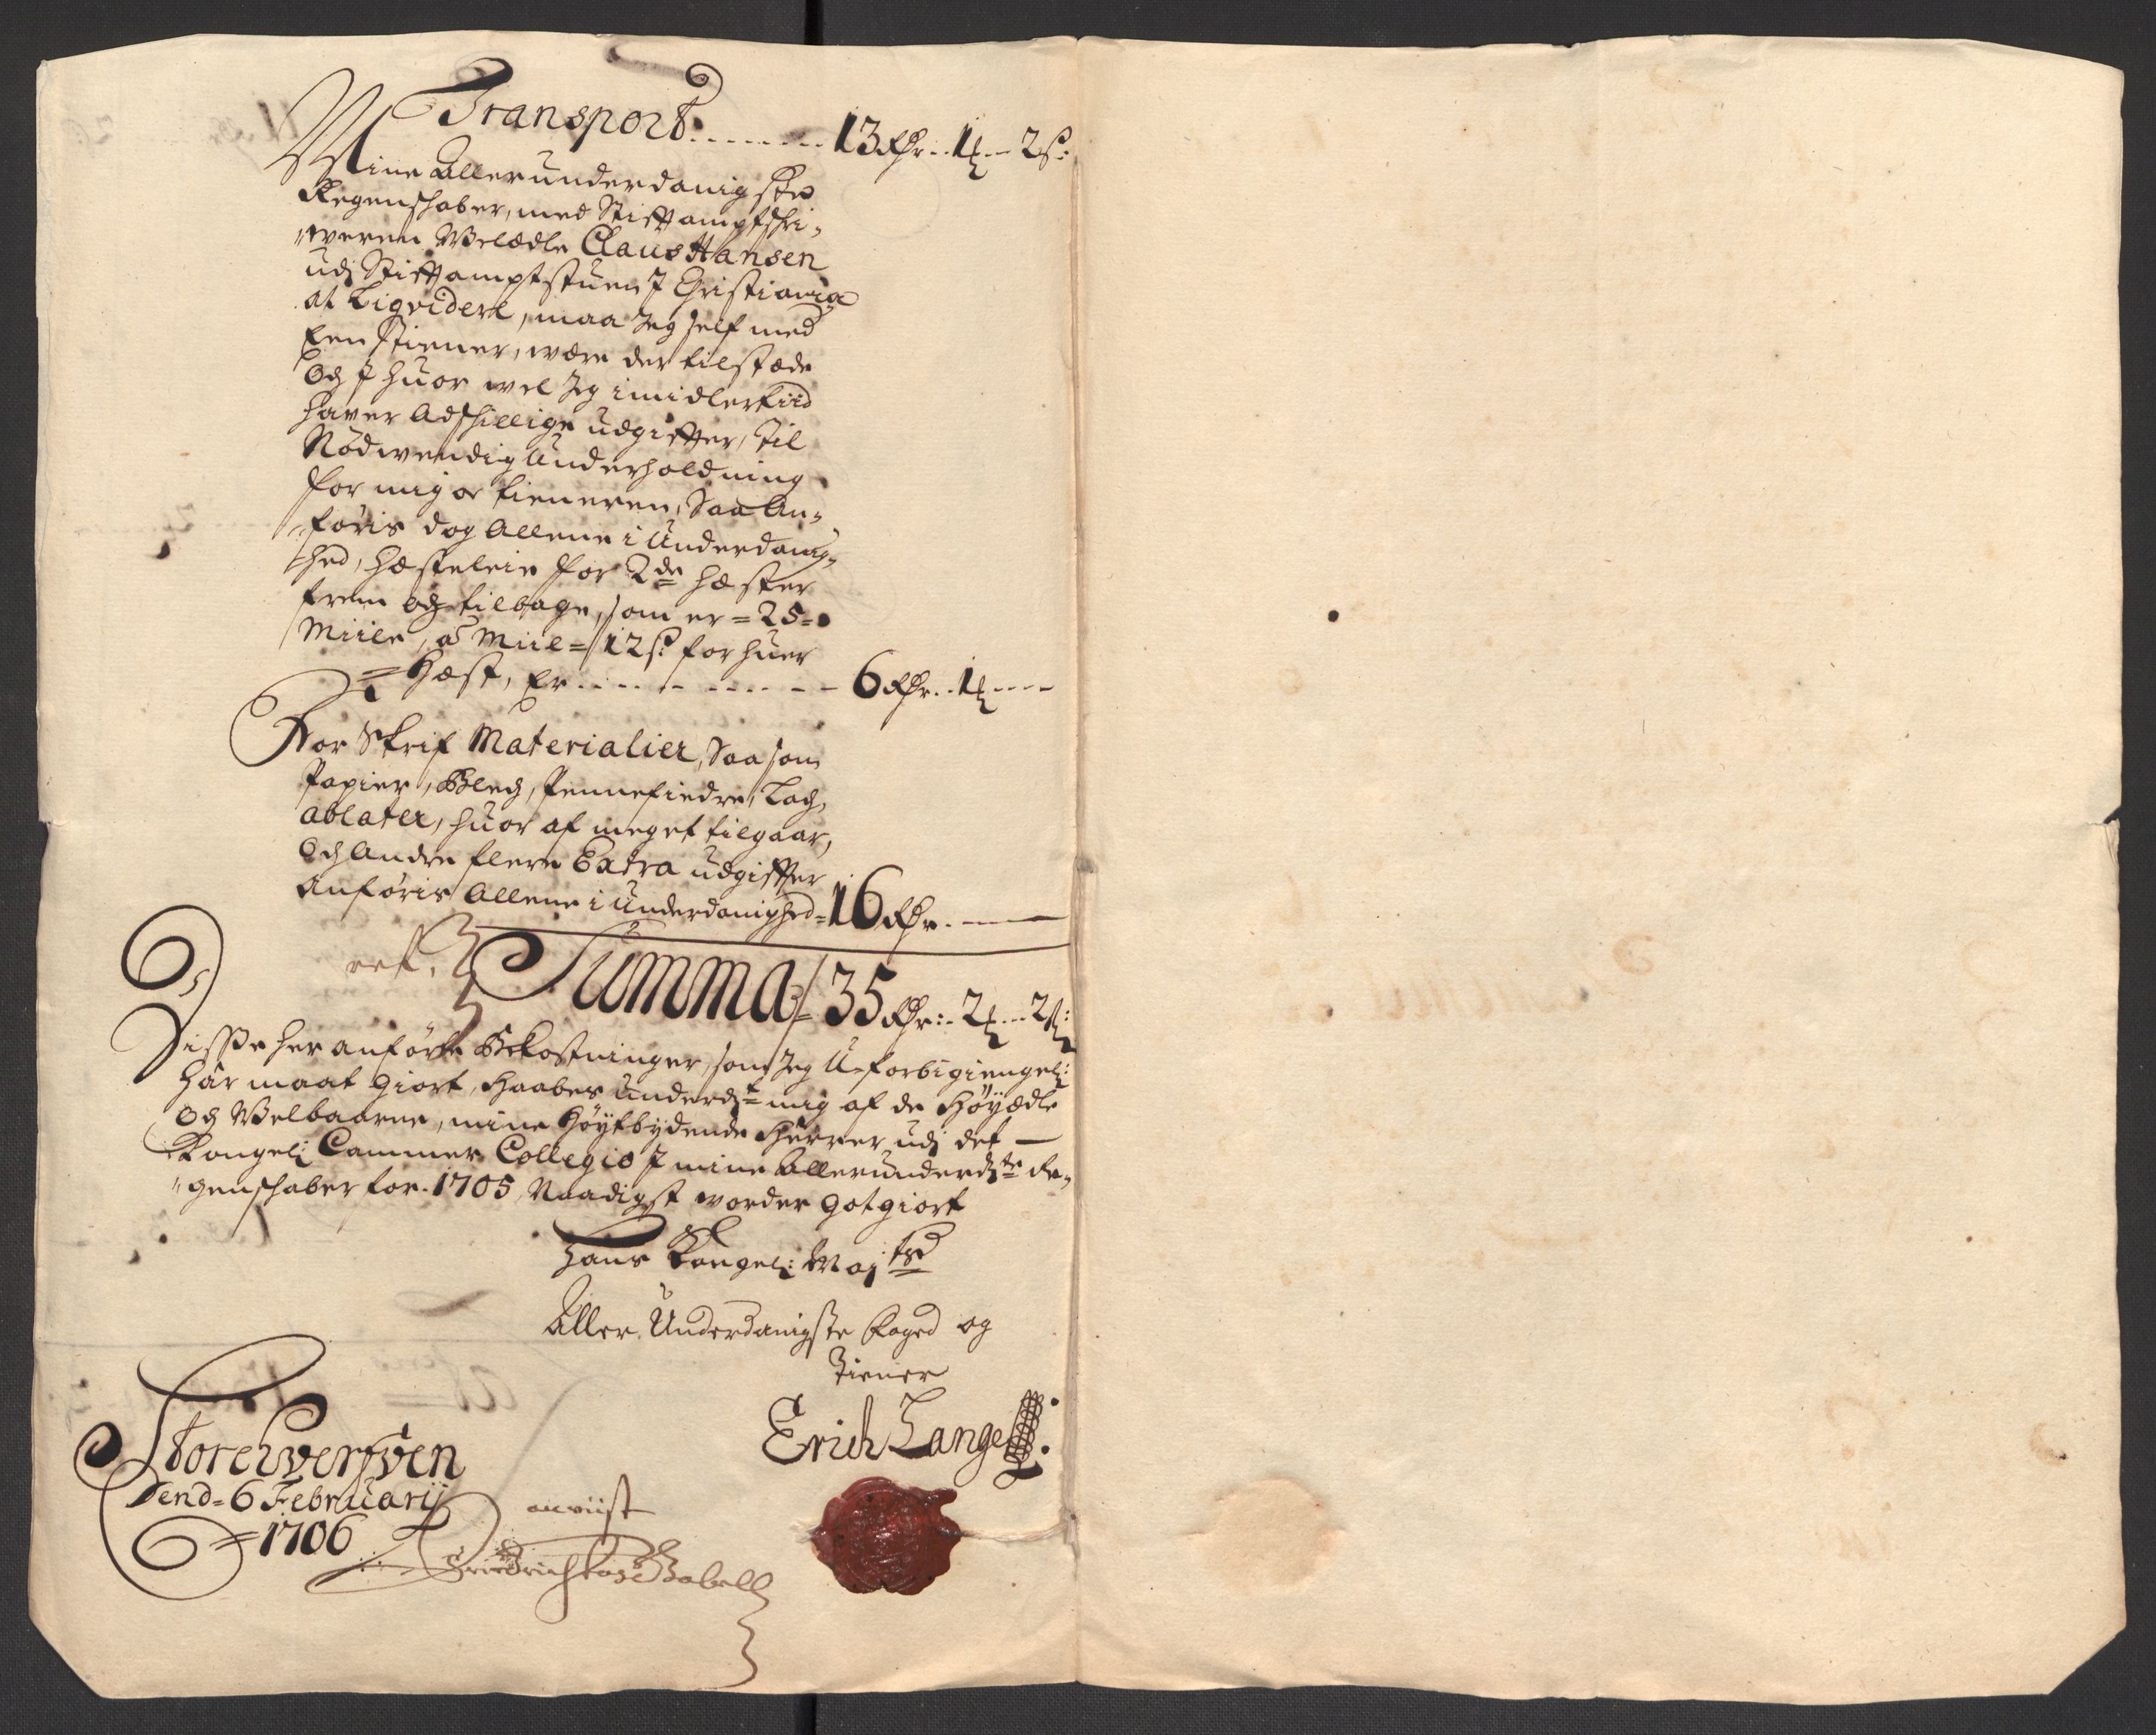 Transport ........ 13 Rdr. 1 ß. 2 s:
Mine Allerunderdanigste
Regenschaber, med Stiftamptschri„
„weren Welædle Claus Hansen
udj Stiftamptstuen J Christiania
at Liqvidere, maa Jeg self med
Een Tiener, være der tilstæde
Och J huor wel Jeg imidlertiid
hafver Adschillige udgifter, til
Nødwendig Underholdning
for mig oc tieneren, Saa An„
„føris dog Allene i Underdanig„
„hed, Hæsteleie for 2de hæster
frem och tilbage, som er = 25 =
Miile, a Miil = 12 s: for huer
Hæst, Er ........... 6 Rdr. 1 ----
For Skrif Materialier, Saa som
Papier, Blech, Pennefiedre, Lach,
ablater, huor af meget tilgaar,
Och Andre flere Extra udgifter
Anføris Allene i Underdanighed = 16 Rdr. ----
Summa = 35 Rdr: 2 --- 2 s:
Disse her anførte Bekostninger, som Jeg U-forbigiengel:
Har maat giort, Haaber underdte mig af de Høyædle
Och Welbaarne, mine Høytbydende Herrer udj det —
Kongel: Cammer Collegio J mine Allerunderdte Re„
„genschaber for 1705, Naadigst worder gotgiort
Hans Kongel: Mayts
Aller Underdanigste foged og
Tiener
Erich Lange
Storehverfven
Dend = 6 Februarij
= 1706
anviist